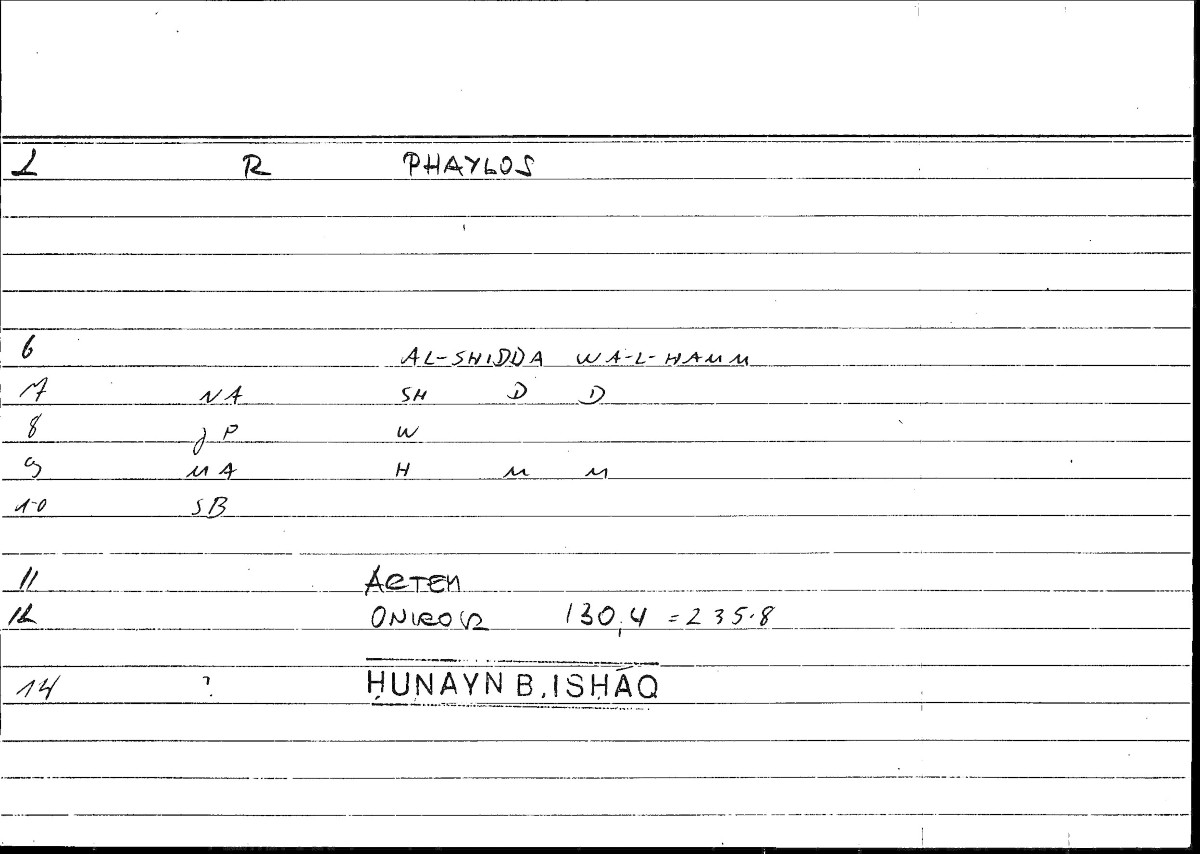 L R PHAYLOS
6 AL-SHIDDA WA-L-HAMM
7 NA SH D D
8 JP W
9 MA H M M
10 SB
11 ARTEM
12 ONIROCR 130,4 = 235.8
14 ? ḤUNAYN B. ISḤĀQ